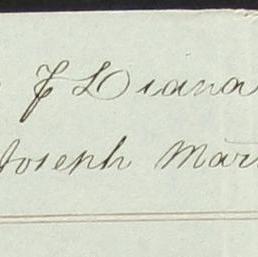 & Diana
Joseph Mar